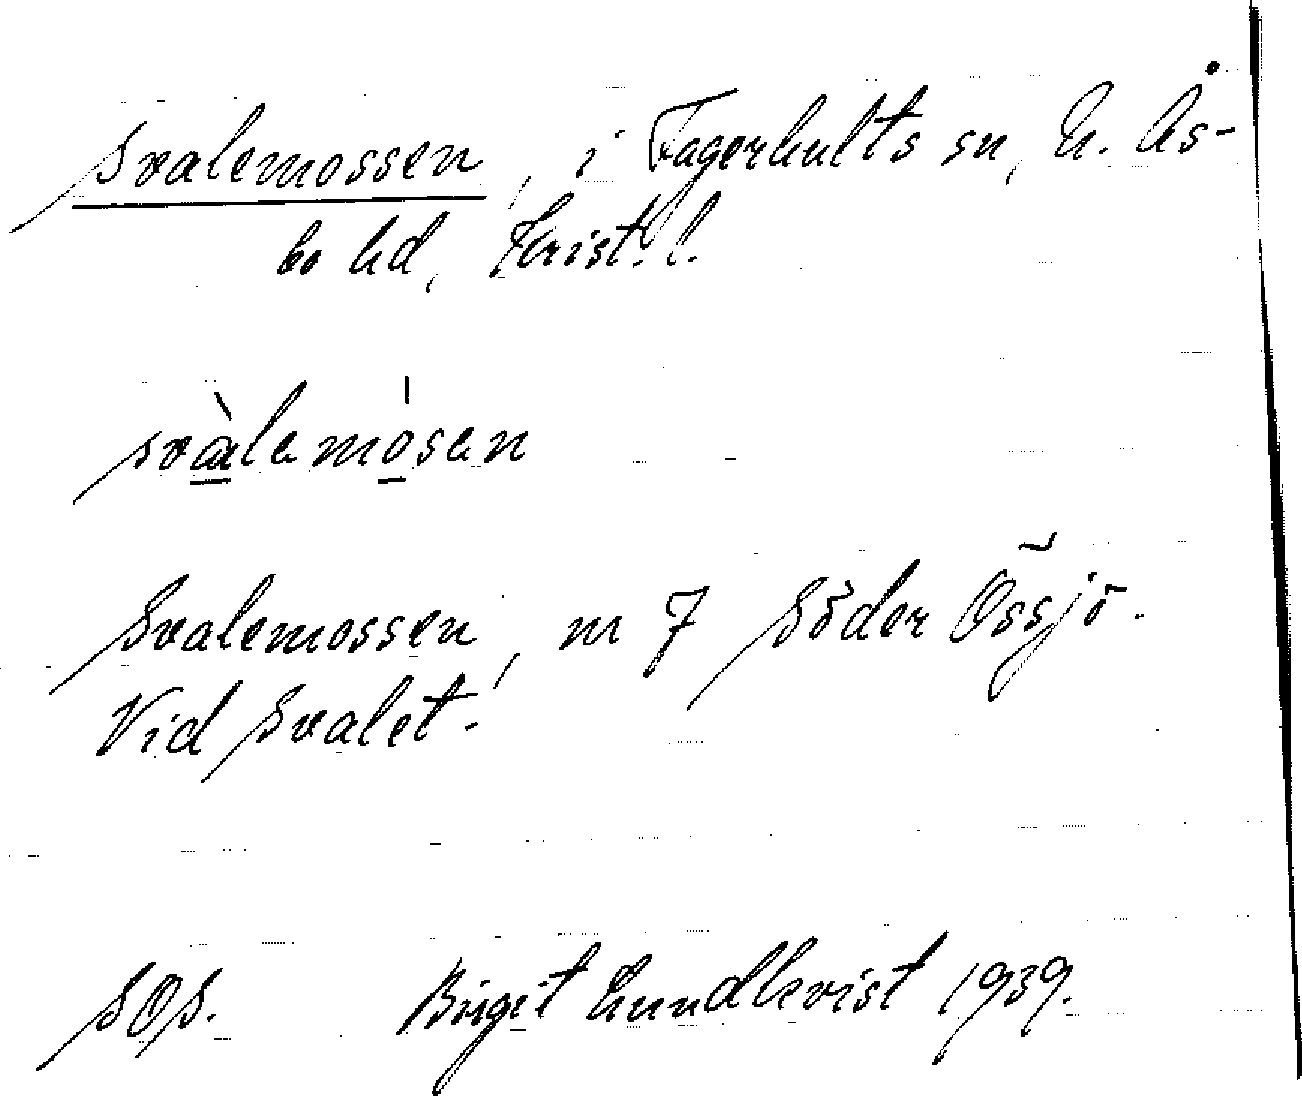 Svalemossen, i Fagerhults sn, N. Ås-
bo hd, Krist. l.
svàlemósen
Svalemossen, m 7 Söder Össjö.
Vid Svalet.
SOS. Birgit Lundkvist 1939.